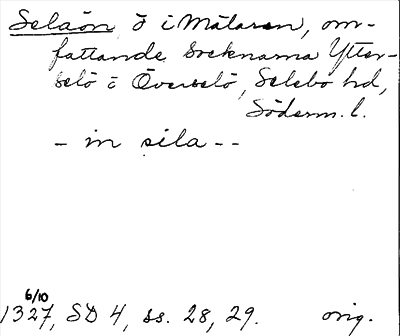 Selaön ö i Mälaren, om-
fattande socknarna Ytter-
selö o Överselö, Selebo hd,
Söderm. l.
- in sila --
6/10
1327, SD 4, ss. 28, 29. orig.